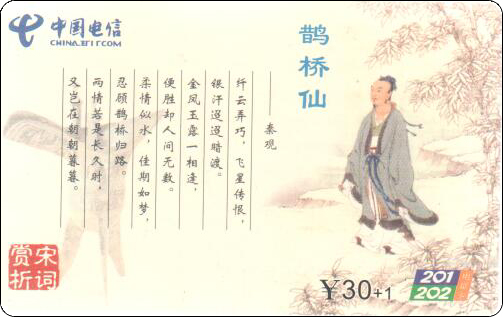 中国电信
CHINA.EFITCOM
鹊桥仙
——秦观
纤云弄巧，飞星传恨，
银汉迢迢暗渡。
金风玉露一相逢，
便胜却人间无数。
柔情似水，佳期如梦，
忍顾鹊桥归路。
两情若是长久时，
又岂在朝朝暮暮。
宋词
赏析
¥30+1
201
202